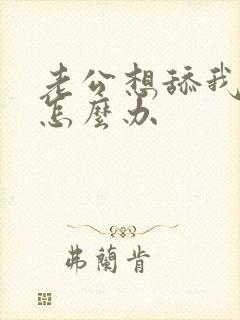 老公想舔我
怎麼办
弗蘭肯